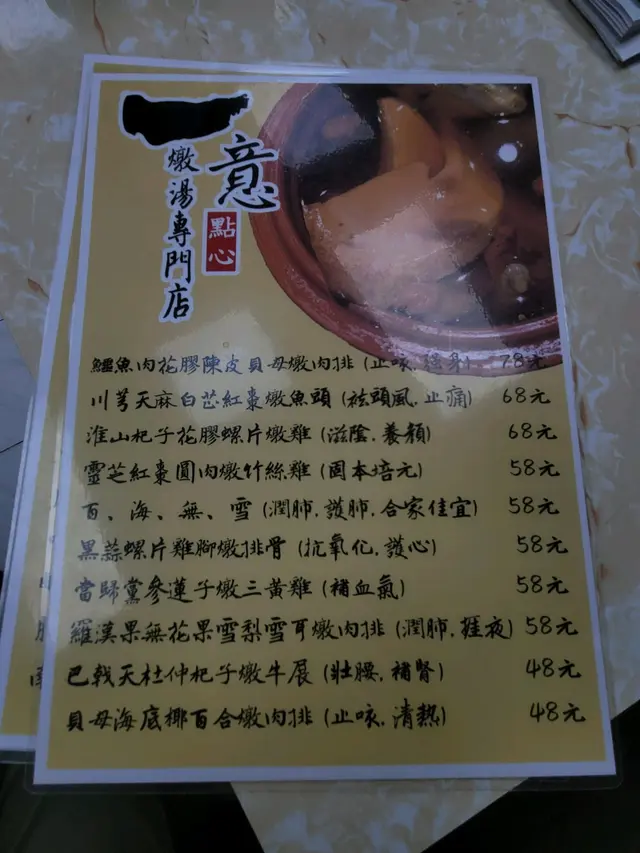 一意
點心
燉湯專門店
鱷魚肉花膠陳皮貝母燉肉排 (止咳, 強身) 78元
川芎天麻白芷紅棗燉魚頭 (祛頭風, 止痛) 68元
淮山杞子花膠螺片燉雞 (滋陰, 養顏) 68元
靈芝紅棗圓肉燉竹絲雞 (固本培元) 58元
百、海、無、雪 (潤肺, 護肺, 合家佳宜) 58元
黑蒜螺片雞腳燉排骨 (抗氧化, 護心) 58元
當歸黨參蓮子燉三黃雞 (補血氣) 58元
羅漢果無花果雪梨雪耳燉肉排 (潤肺, 捱夜) 58元
巴戟天杜仲杞子燉牛展 (壯腰, 補腎) 48元
貝母海底椰百合燉肉排 (止咳, 清熱) 48元